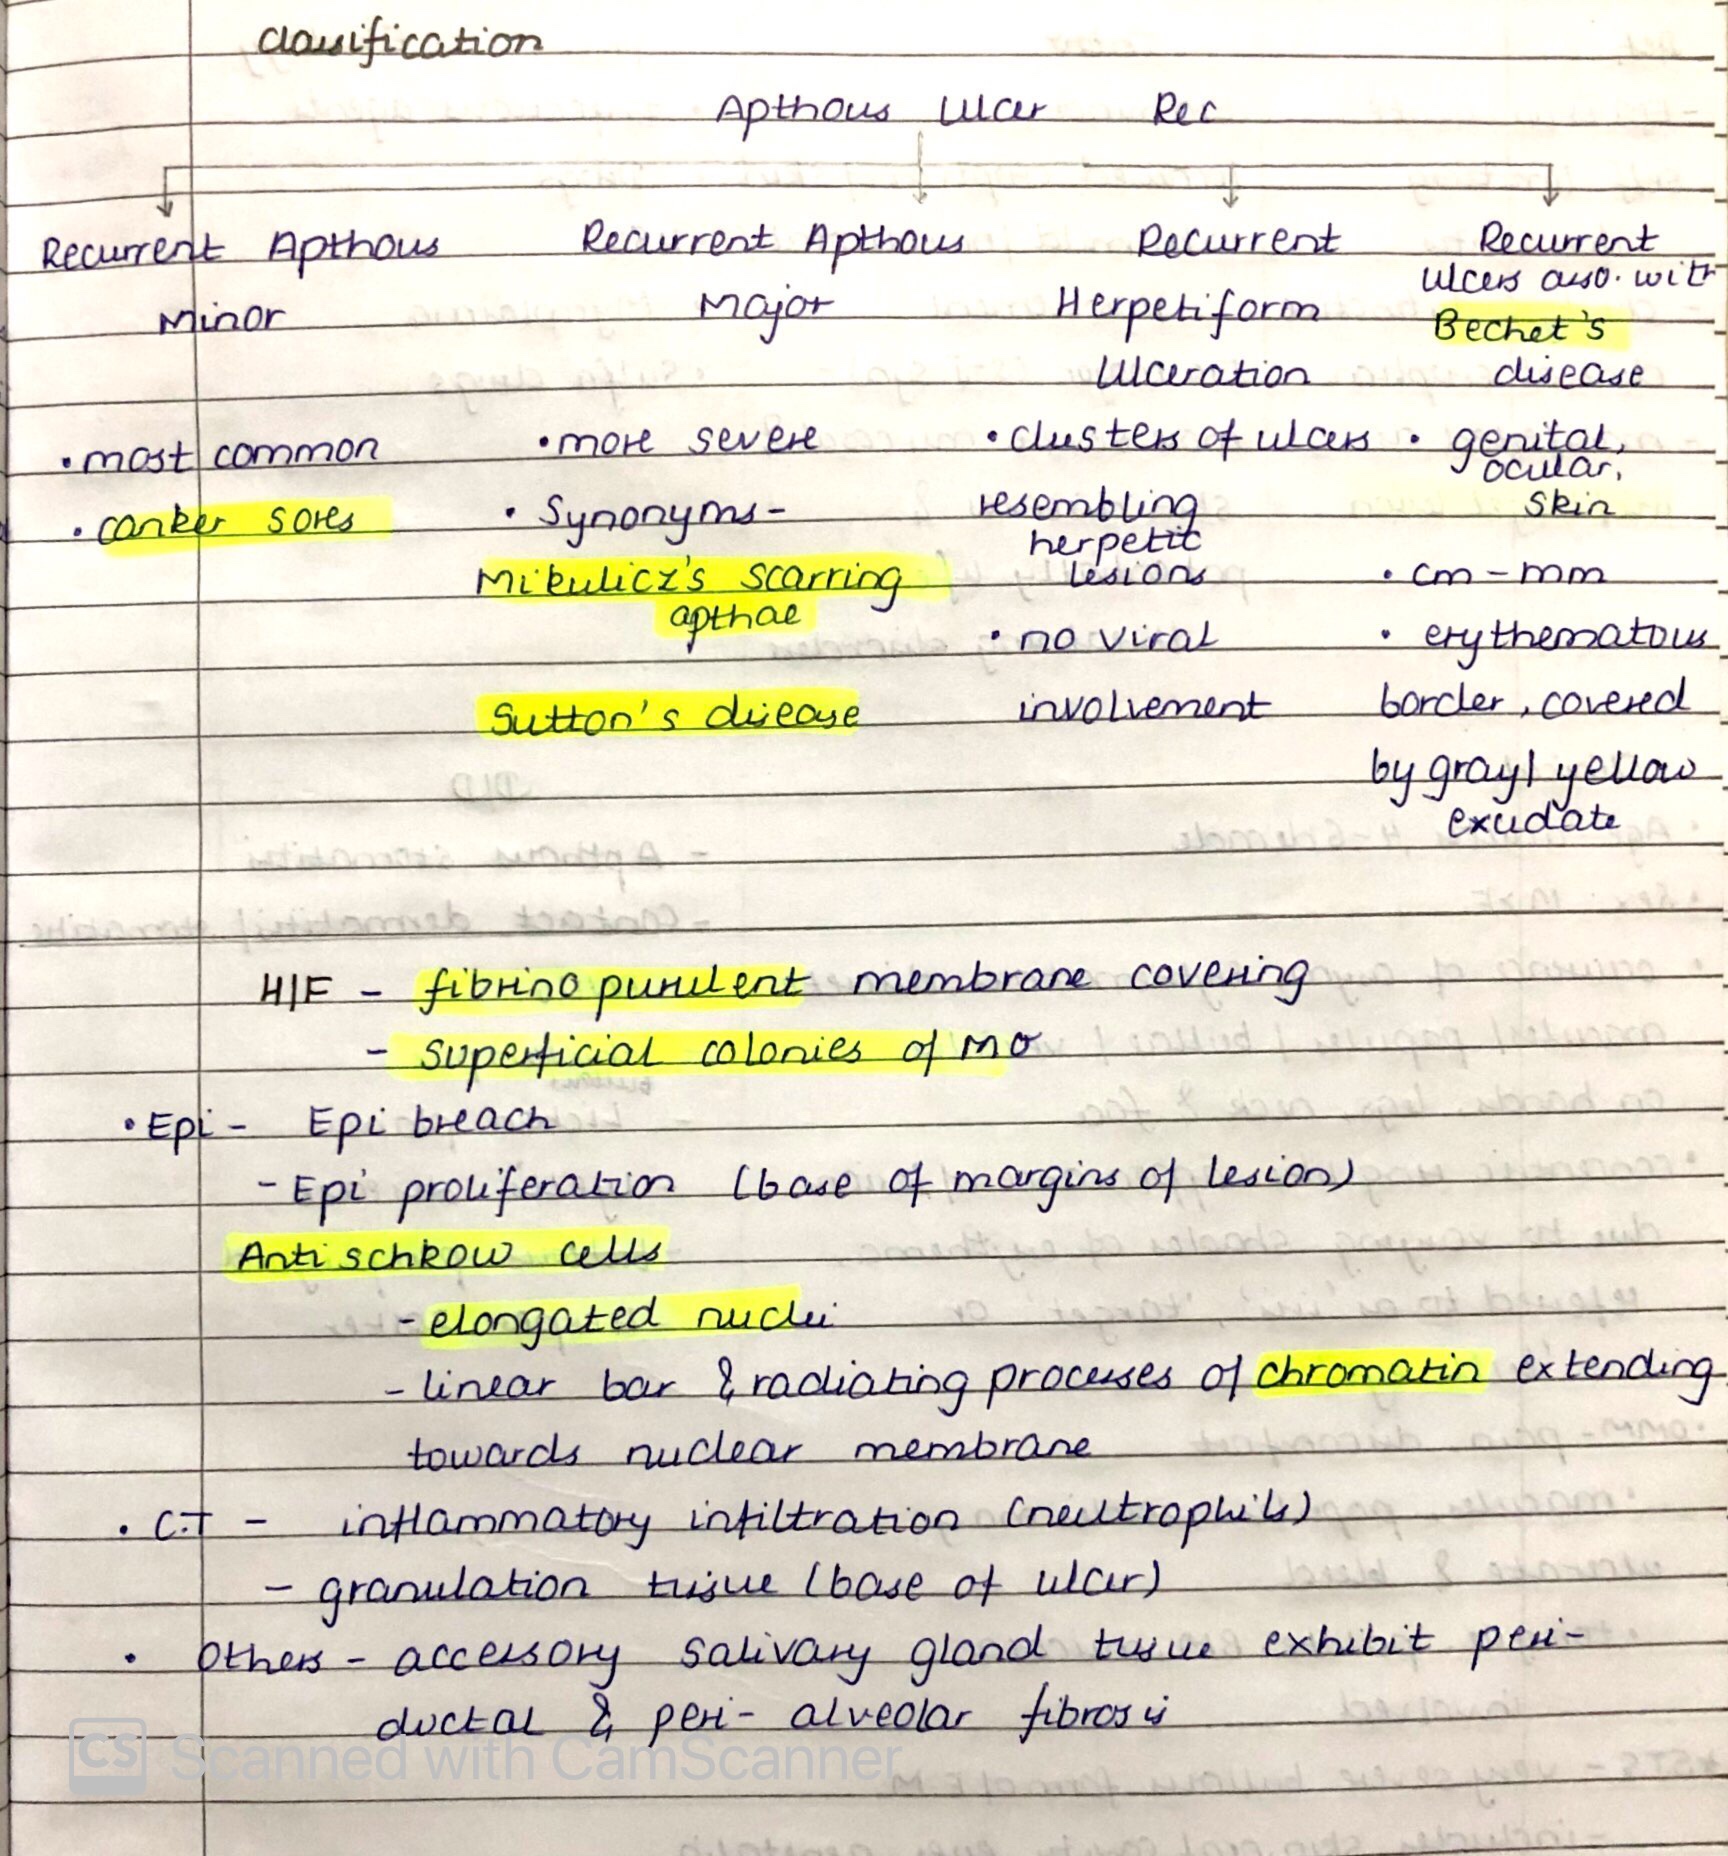 Classification
Apthous Ulcer Rec
Recurrent Apthous
Minor
• most common
• canker sores
Recurrent Apthous
Major
• more severe
• Synonyms -
Mikulicz's scarring
apthae
Sutton's disease
Recurrent
Herpetiform
Ulceration
• clusters of ulcers
resembling
herpetic
lesions
• no viral
involvement
Recurrent
Ulcers asso. with
Bechet's
disease
• genital,
ocular,
skin
• cm - mm
• erythematous
border, covered
by gray/yellow
exudate
H/F - fibrinopurulent membrane covering
- superficial colonies of MO
• Epi - Epi breach
- Epi proliferation (base of margins of lesion)
Antischkow cells
- elongated nuclei
- linear bar & radiating processes of chromatin extending
towards nuclear membrane
• C.T - inflammatory infiltration (neutrophils)
- granulation tissue (base of ulcer)
• Others - accessory salivary gland tissue exhibit peri-
ductal & peri-alveolar fibrosis
CS Scanned with CamScanner